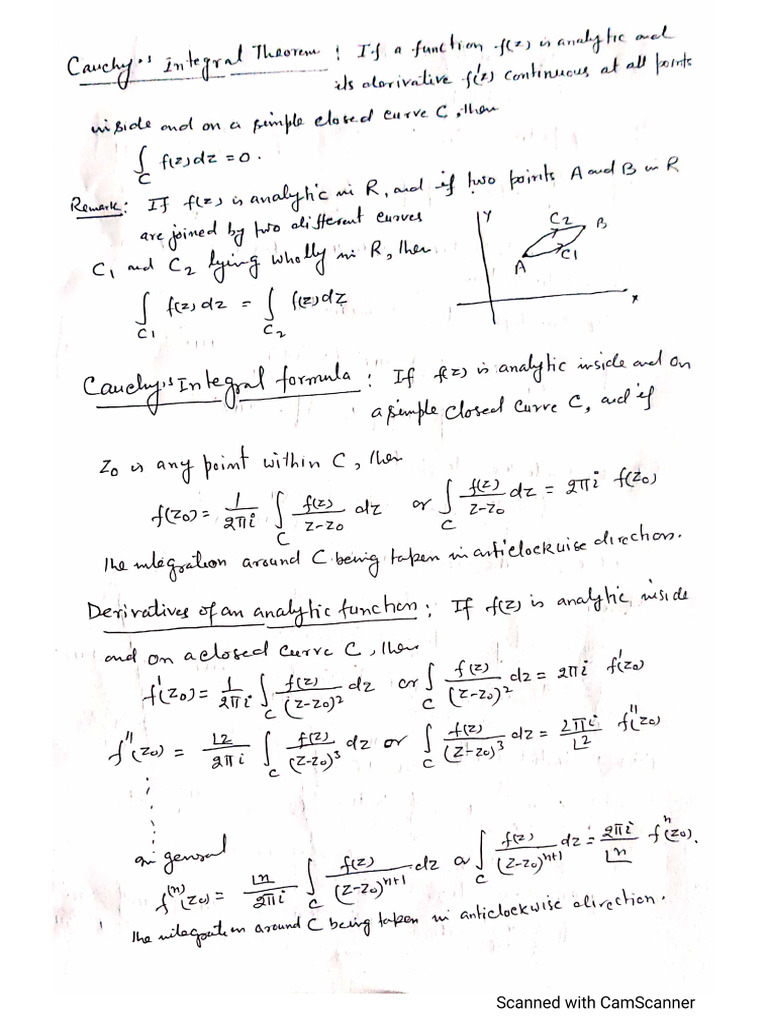 Cauchy's Integral Theorem : If a function f(z) is analytic and
its derivative f'(z) continuous at all points
inside and on a simple closed curve C, then
∫_C f(z)dz = 0.
Remark: If f(z) is analytic in R, and if two points A and B in R
are joined by two different curves
C1 and C2 lying wholly in R, then
∫_C1 f(z)dz = ∫_C2 f(z)dz
Y
C2
B
A
C1
x
Cauchy's Integral formula : If f(z) is analytic inside and on
a simple closed curve C, and if
Z0 is any point within C, then
f(z0) = 1/2πi ∫_C f(z)/(z-z0) dz or ∫_C f(z)/(z-z0) dz = 2πi f(z0)
The integration around C being taken in anticlockwise direction.
Derivatives of an analytic function : If f(z) is analytic inside
and on a closed curve C, then
f'(z0) = 1/2πi ∫_C f(z)/(z-z0)^2 dz or ∫_C f(z)/(z-z0)^2 dz = 2πi f'(z0)
f''(z0) = ⌊2/2πi ∫_C f(z)/(z-z0)^3 dz or ∫_C f(z)/(z-z0)^3 dz = 2πi/⌊2 f''(z0)
In general
f^(n)(z0) = ⌊n/2πi ∫_C f(z)/(z-z0)^(n+1) dz or ∫_C f(z)/(z-z0)^(n+1) dz = 2πi/⌊n f^n(z0).
The integration around C being taken in anticlockwise direction.
Scanned with CamScanner